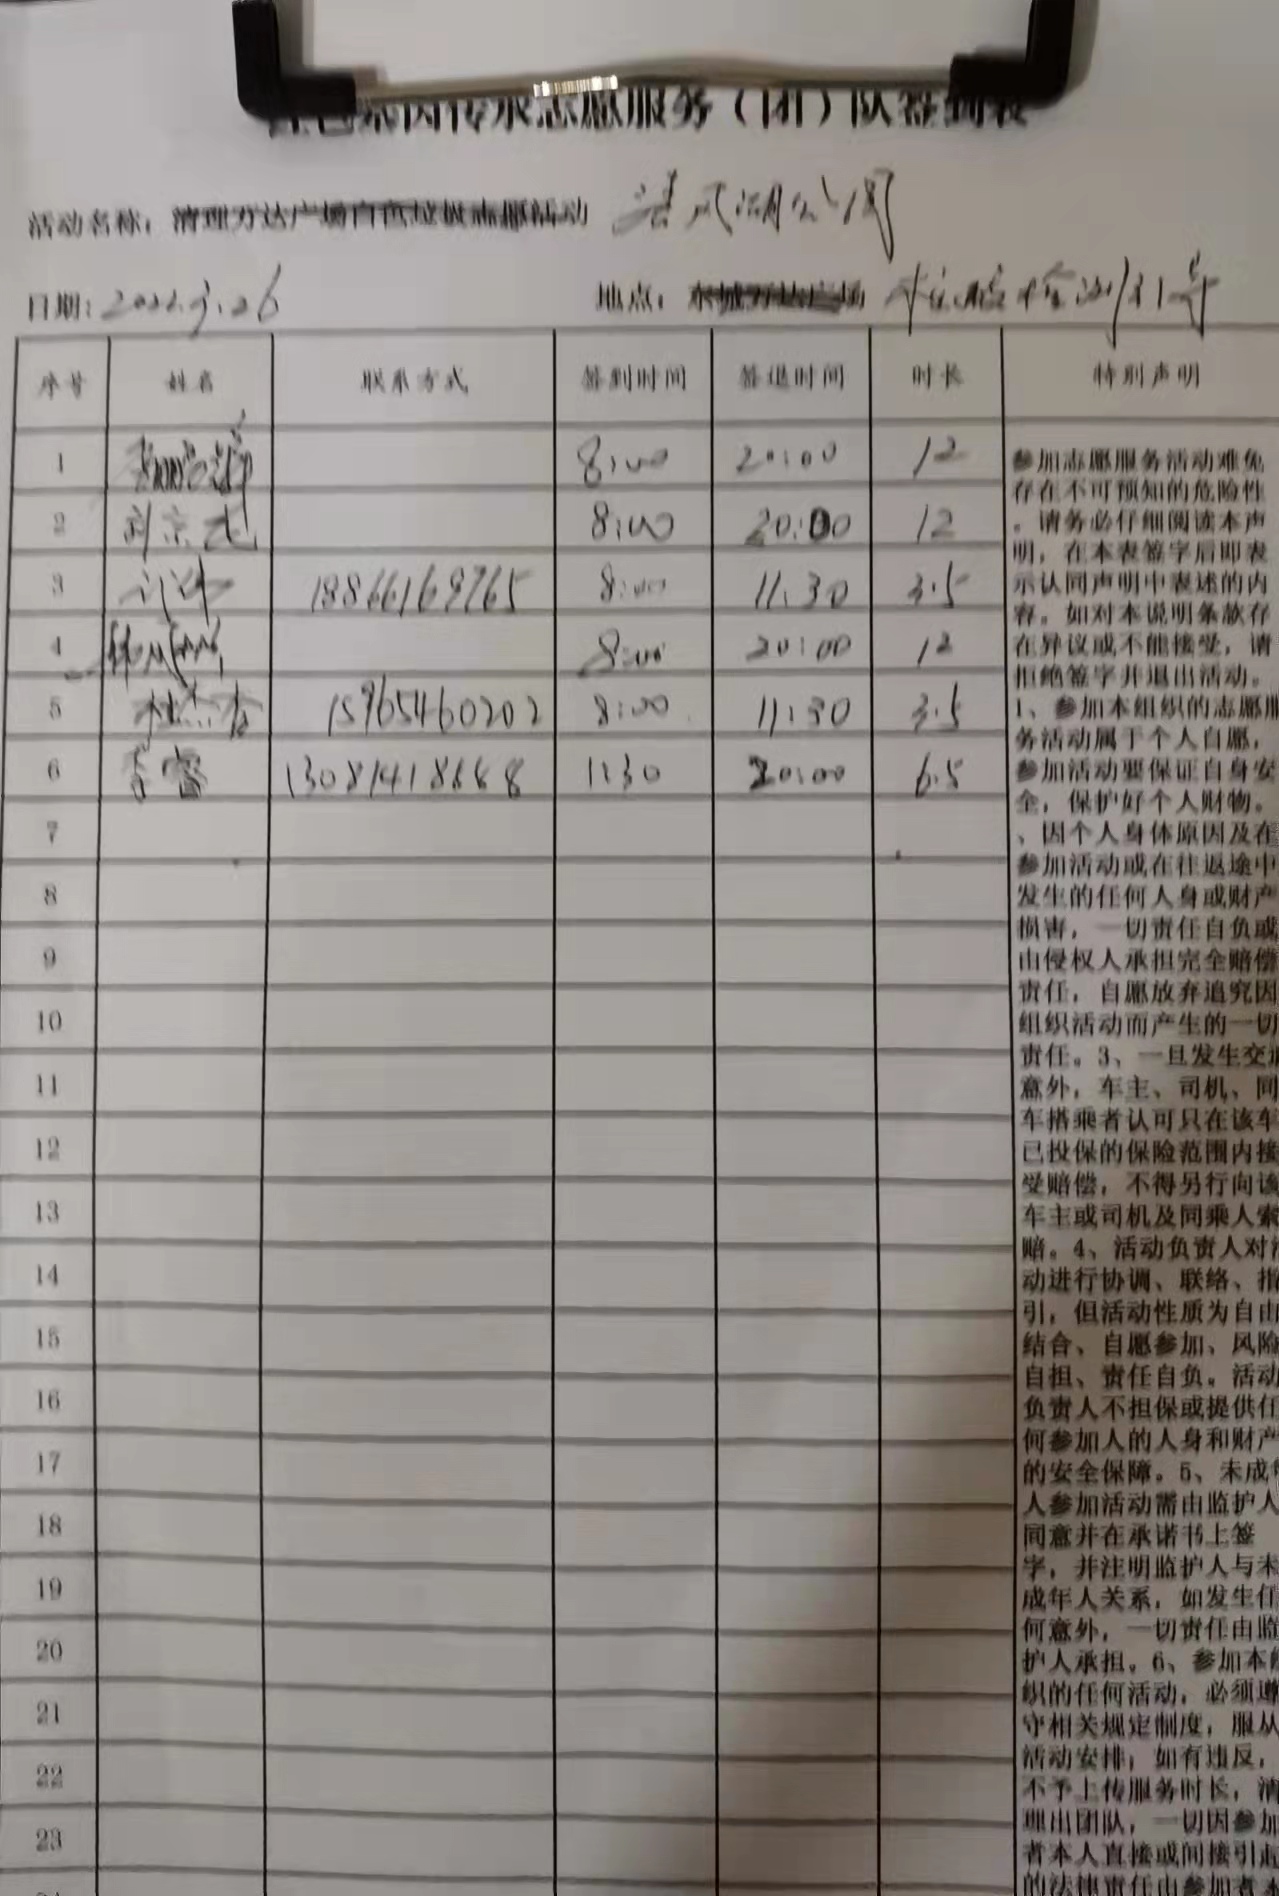 红色基因传承志愿服务（团）队签到表
活动名称：清理万达广场白色垃圾志愿活动 清风湖公园
日期：2022.3.26 地点：东城万达广场 核酸检测引导
序号 姓名 联系方式 签到时间 签退时间 时长 特别声明
1 8:00 20:00 12
2 8:00 20:00 12
3 18866169765 8:00 11:30 3.5
4 8:00 20:00 12
5 15965460202 8:00 11:30 3.5
6 李睿 11:30 20:00 6.5
7
8
9
10
11
12
13
14
15
16
17
18
19
20
21
22
23
参加志愿服务活动难免
存在不可预知的危险性
。请务必仔细阅读本声
明，在本表签字后即表
示认同声明中表述的内
容。如对本说明条款存
在异议或不能接受，请
拒绝签字并退出活动。
1、参加本组织的志愿服
务活动属于个人自愿，
参加活动要保证自身安
全，保护好个人财物。
、因个人身体原因及在
参加活动或在往返途中
发生的任何人身或财产
损害，一切责任自负或
由侵权人承担完全赔偿
责任，自愿放弃追究因
组织活动而产生的一切
责任。3、一旦发生交通
意外，车主、司机、同
车搭乘者认可只在该车
已投保的保险范围内接
受赔偿，不得另行向该
车主或司机及同乘人索
赔。4、活动负责人对活
动进行协调、联络、指
引，但活动性质为自由
结合、自愿参加、风险
自担、责任自负。活动
负责人不担保或提供任
何参加人的人身和财产
的安全保障。5、未成年
人参加活动需由监护人
同意并在承诺书上签
字，并注明监护人与未
成年人关系，如发生任
何意外，一切责任由监
护人承担。6、参加本组
织的任何活动，必须遵
守相关规定制度，服从
活动安排；如有违反，
不予上传服务时长，清
理出团队，一切因参加
者本人直接或间接引起
的法律责任由参加者本